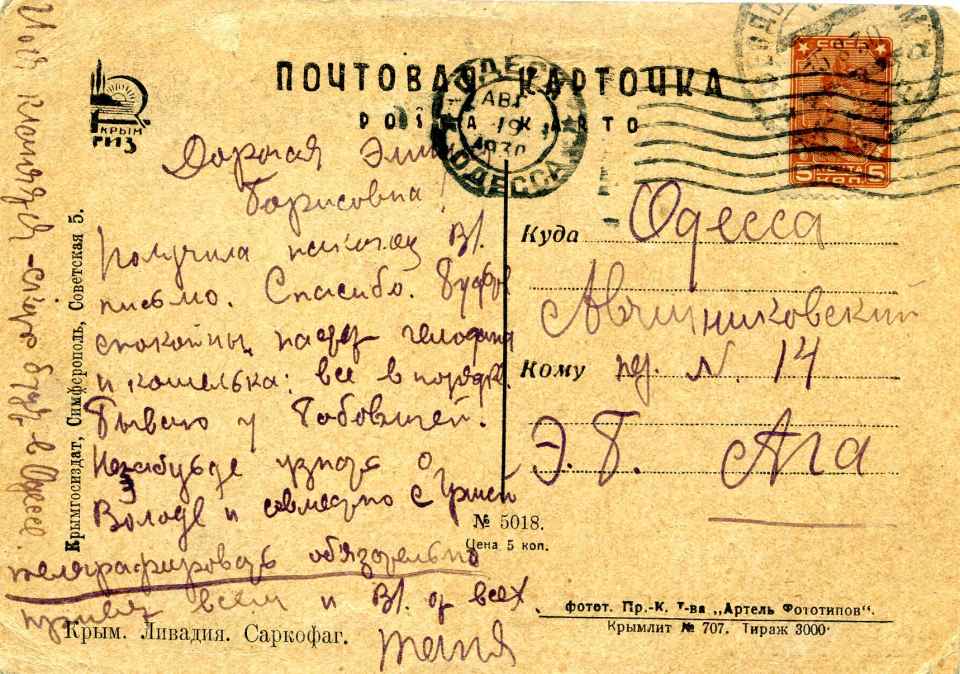 ПОЧТОВАЯ КАРТОЧКА
КРЫМ
ГИЗ
ОДЕССА
АВГ
19
1930
ОДЕССА
СССР
5 ПОЧТА 5
КОП.
Дорогая Эмма
Борисовна!
Получила наконец В/.
письмо. Спасибо. Будьте
спокойны насчет чемодана
и кошелька: все в порядке.
Бываю у
Незабудьте узнать о
Володе и совместно с Гришей
телеграфировать обязательно
привет всем и В/. от всех
Таня
Крымгосиздат, Симферополь, Советская 5.
Куда Одесса
Авчинниковский
Кому пер. N. 14
Э. Б. Ага
№ 5018.
Цена 5 коп.
фотот. Пр.-К. Т-ва „Артель Фототипов".
Крымлит № 707. Тираж 3000
Крым. Ливадия. Саркофаг.